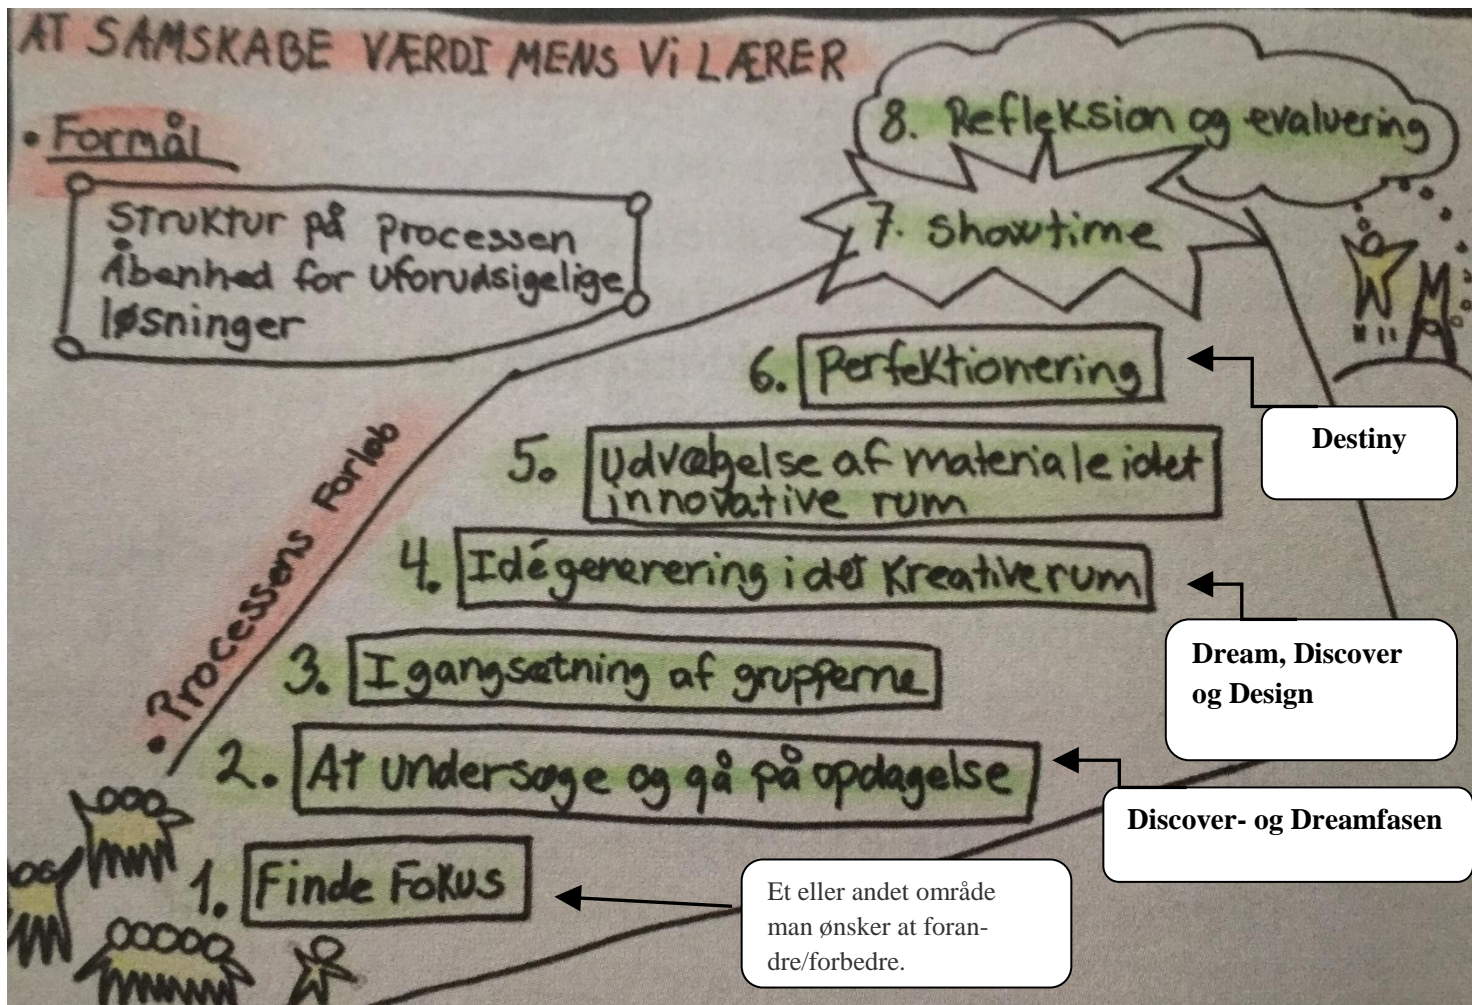 AT SAMSKABE VÆRDI MENS Vi LÆRER
• Formål
Struktur på processen
Åbenhed for uforudsigelige
løsninger
• Processens Forløb
8. Refleksion og evaluering
7. Showtime
6. Perfektionering
Destiny
5. Udvælgelse af materiale i det
innovative rum
4. Idégenerering i det Kreative rum
Dream, Discover
og Design
3. Igangsætning af grupperne
2. At undersøge og gå på opdagelse
Discover- og Dreamfasen
1. Finde Fokus
Et eller andet område
man ønsker at foran-
dre/forbedre.